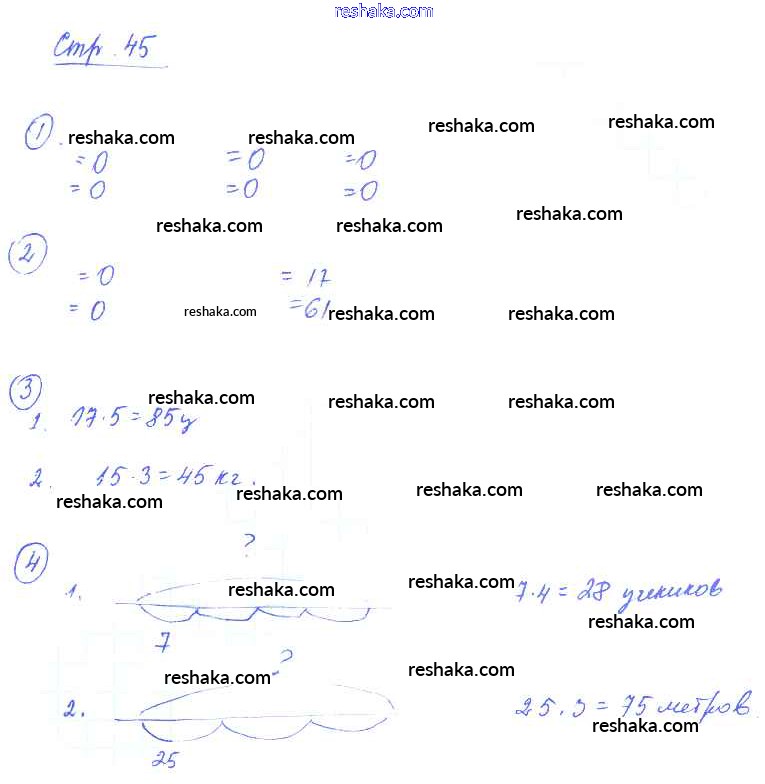 reshaka.com
Стр. 45
reshaka.com reshaka.com reshaka.com reshaka.com
1.
=0 =0 =0
=0 =0 =0
reshaka.com reshaka.com reshaka.com
2
=0 =17
=0 reshaka.com =61 reshaka.com reshaka.com
3
reshaka.com reshaka.com reshaka.com
1. 17·5=85
2. 15·3=45 кг.
reshaka.com reshaka.com reshaka.com reshaka.com
4
?
1. reshaka.com reshaka.com 7·4=28 учеников
7 reshaka.com
reshaka.com ? reshaka.com
2. 25·3=75 метров.
25 reshaka.com